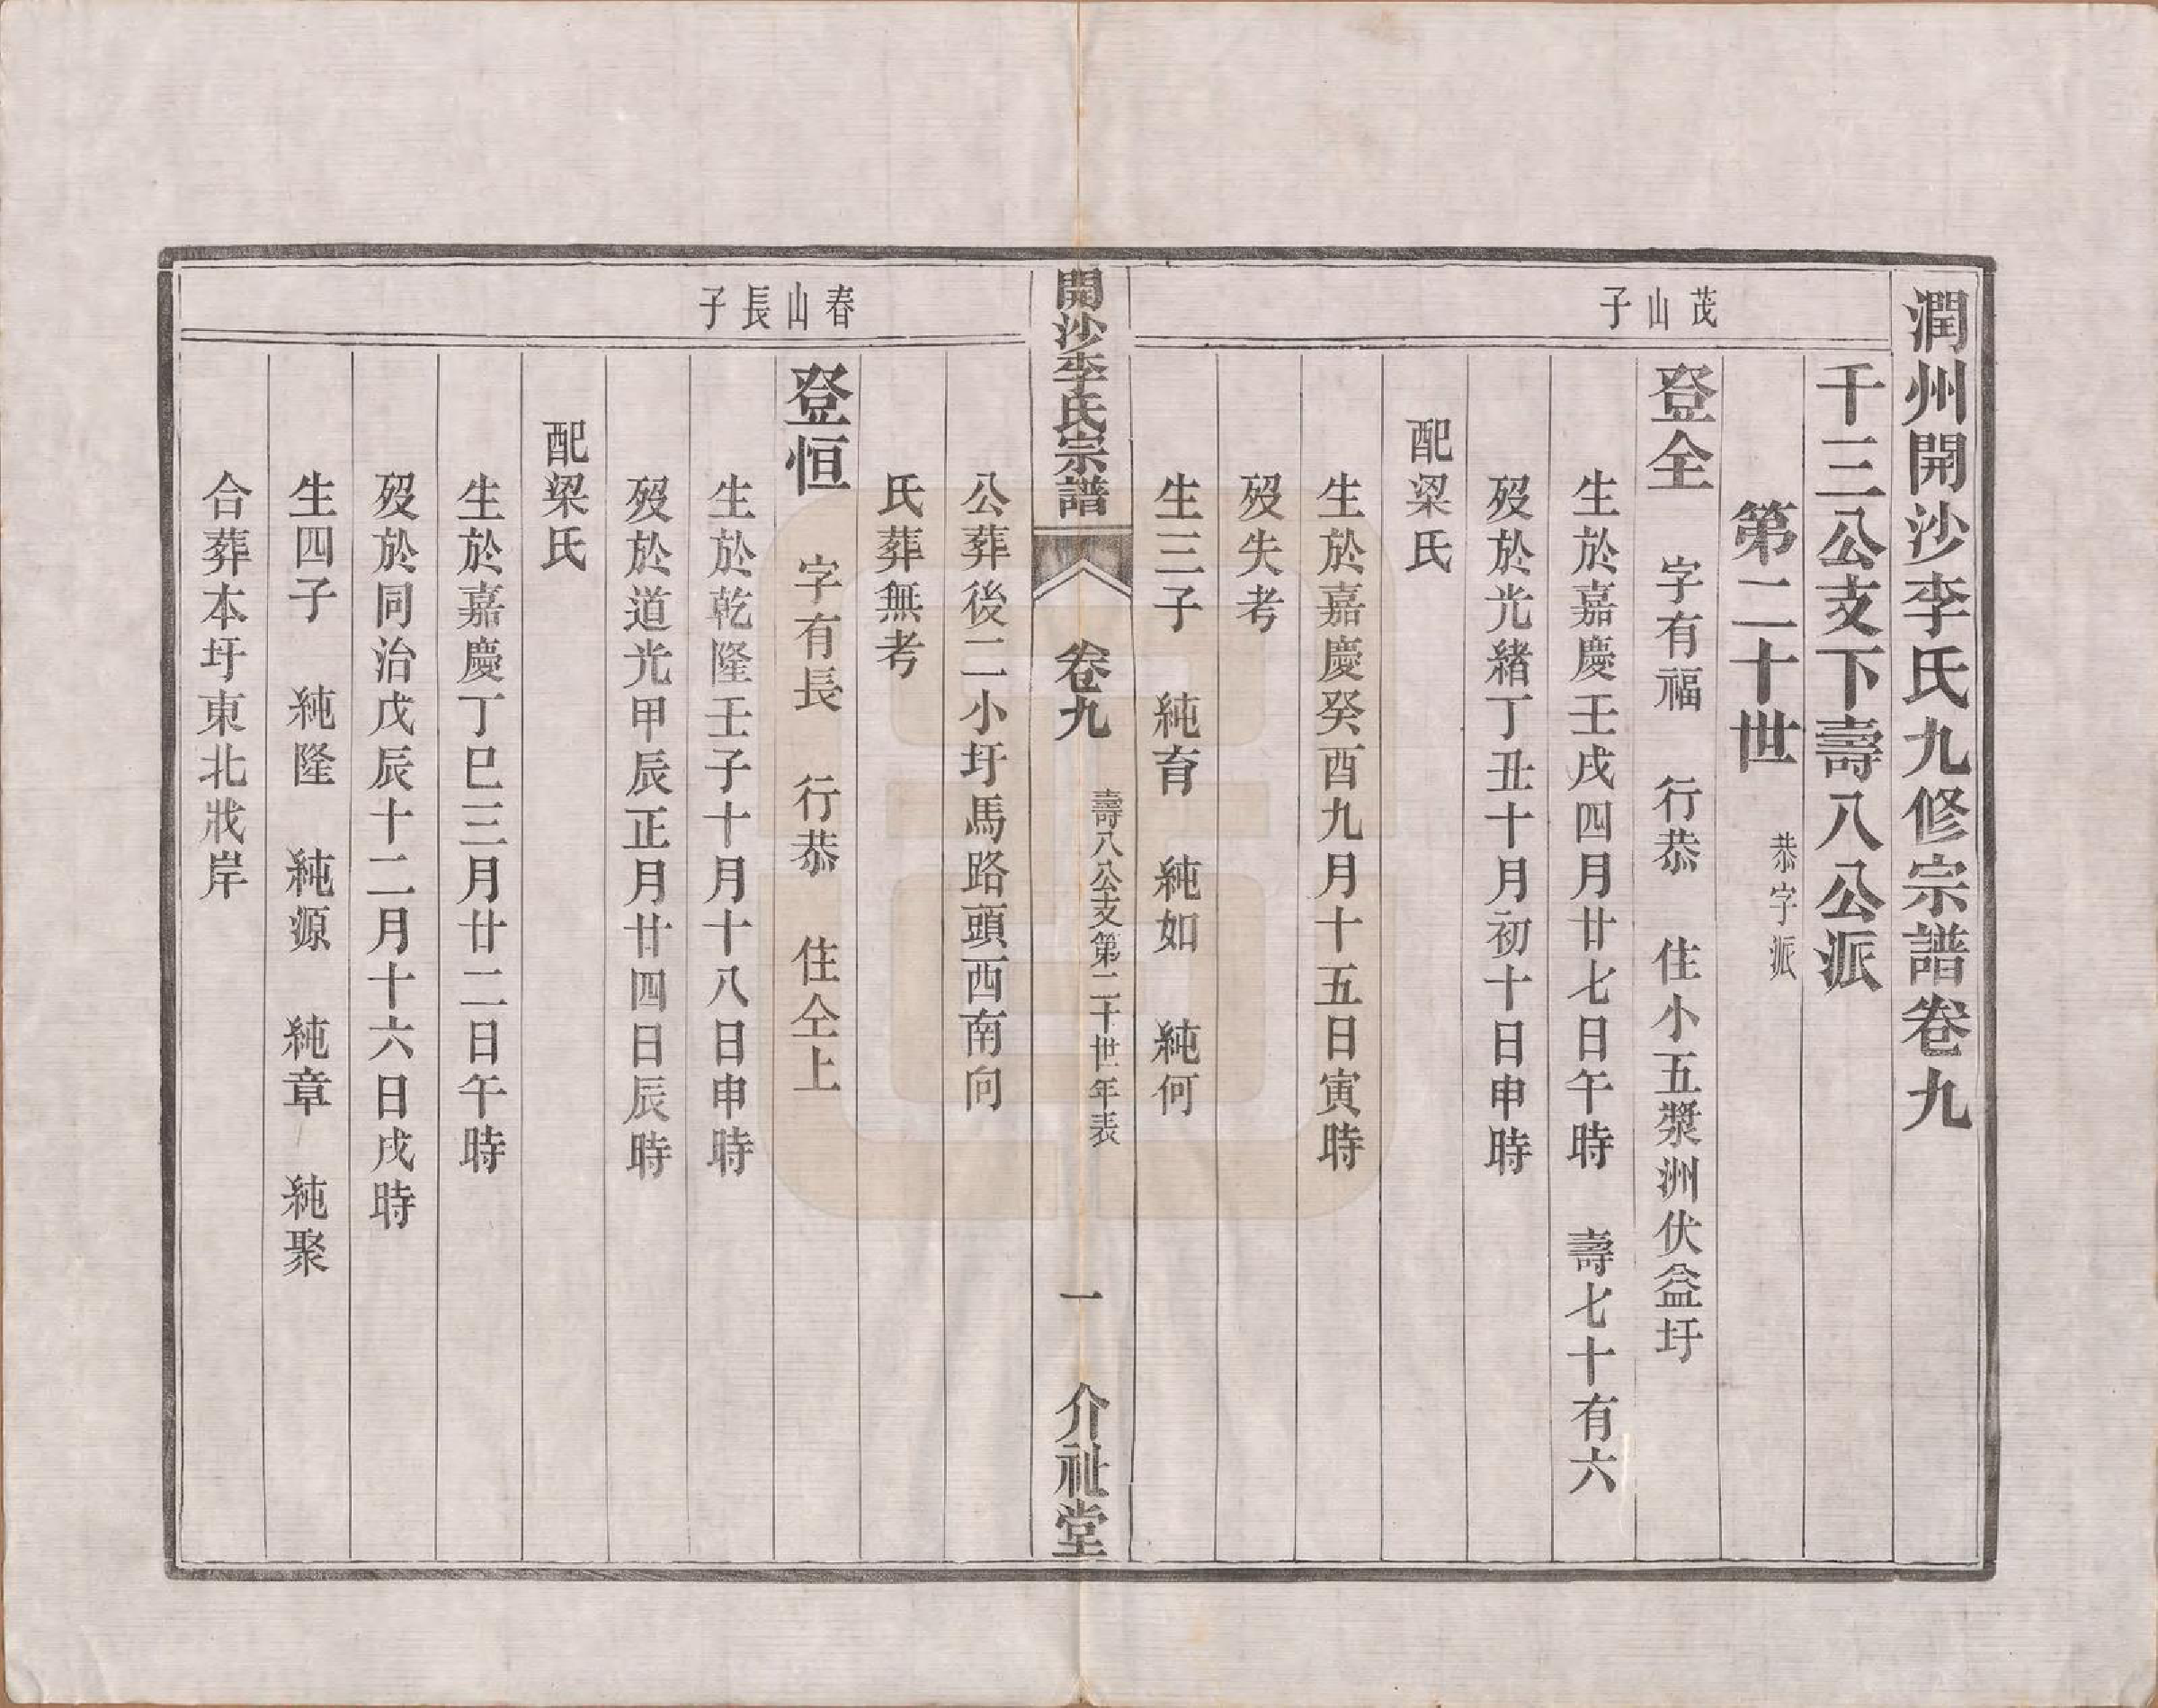 潤州開沙李氏九修宗譜卷九
千三公支下壽八公派
第二十世 恭字派
茂山子
登全 字有福 行恭 住小五漿洲伏益圩
生於嘉慶壬戌四月廿七日午時 壽七十有六
歿於光緒丁丑十月初十日申時
配梁氏
生於嘉慶癸酉九月十五日寅時
歿失考
生三子 純育 純如 純何
開沙李氏宗譜 卷九 壽八公支第二十世年表 一 介祉堂
公葬後二小圩馬路頭西南向
氏葬無考
春山長子
登恒 字有長 行恭 住仝上
生於乾隆壬子十月十八日申時
歿於道光甲辰正月廿四日辰時
配梁氏
生於嘉慶丁巳三月廿二日午時
歿於同治戊辰十二月十六日戌時
生四子 純隆 純源 純章 純聚
合葬本圩東北戕岸